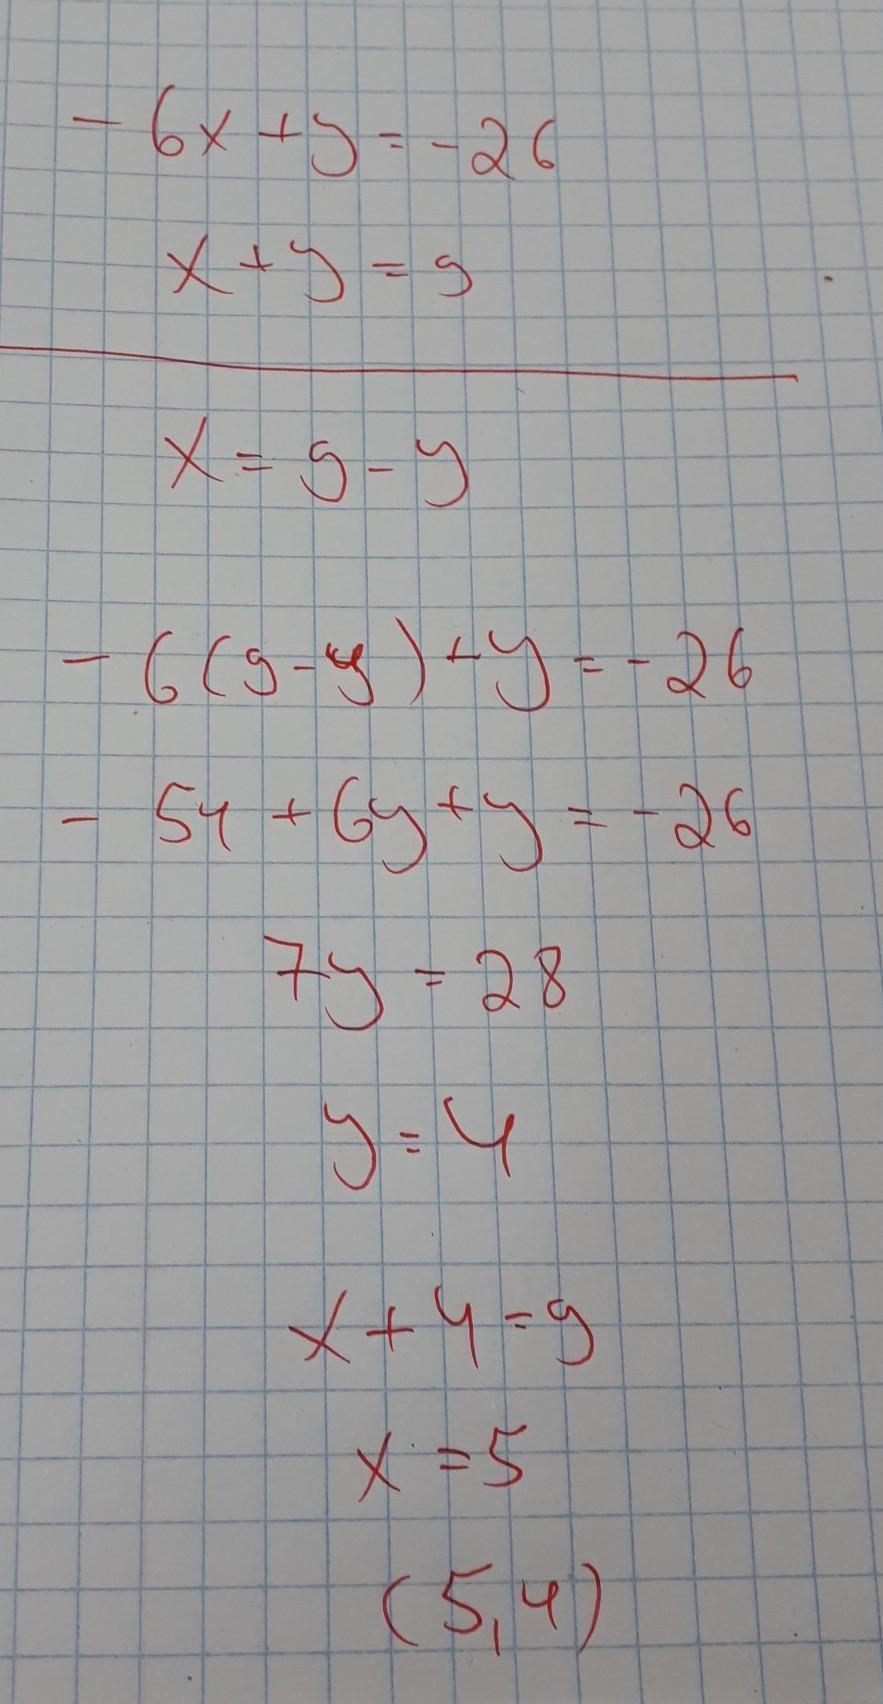 -6x+y=-26
x+y=9
x=9-y
-6(9-y)+y=-26
-54+6y+y=-26
7y=28
y=4
x+4=9
x=5
(5,4)